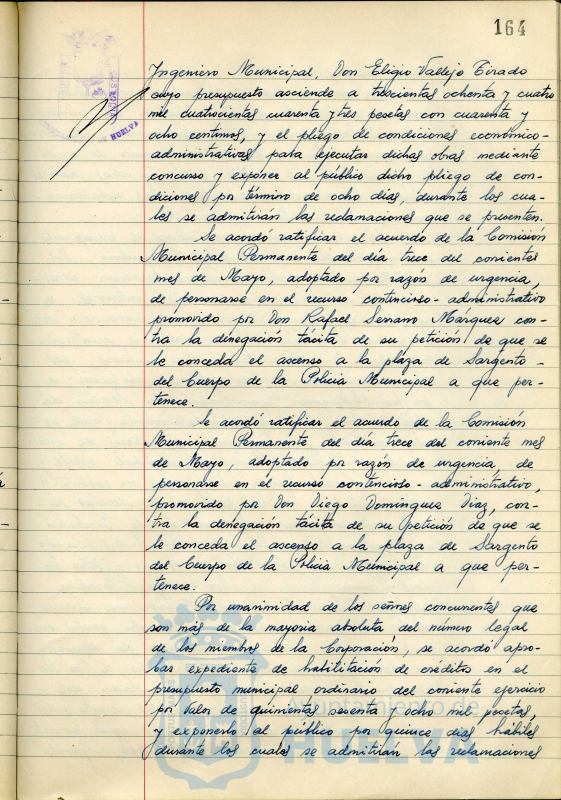 164
Ingeniero Municipal, Don Eligio Vallejo Tirado
cuyo presupuesto asciende a trescientas ochenta y cuatro
mil cuatrocientas cuarenta y tres pesetas con cuarenta y
ocho centimos, y el pliego de condiciones económico-
administrativas para ejecutar dichas obras mediante
concurso y exponer al público dicho pliego de con-
diciones por término de ocho días, durante los cua-
les se admitirán las reclamaciones que se presenten.
Se acordó ratificar el acuerdo de la Comisión
Municipal Permanente del día trece del corrientes
mes de Mayo, adoptado por razón de urgencia,
de personarse en el recurso contencioso-administrativo
promovido por Don Rafael Serrano Márquez con-
tra la denegación tácita de su petición de que se
le conceda el ascenso a la plaza de Sargento
del Cuerpo de la Policía Municipal a que per-
tenece.
Se acordó ratificar el acuerdo de la Comisión
Municipal Permanente del día trece del corriente mes
de Mayo, adoptado por razón de urgencia, de
personarse en el recurso contencioso-administrativo,
promovido por Don Diego Domínguez Díaz, con-
tra la denegación tácita de su petición de que se
le conceda el ascenso a la plaza de Sargento
del Cuerpo de la Policía Municipal a que per-
tenece.
Por unanimidad de los señores concurrentes que
son más de la mayoria absoluta del número legal
de los miembros de la Corporación, se acordó apro-
bar expediente de habilitación de créditos en el
presupuesto municipal ordinario del corriente ejercicio
por valor de quinientas sesenta y ocho mil pesetas,
y exponerlo al público por quince días hábiles
durante los cuales se admitirán las reclamaciones
HUELVA
Ayuntamiento de
HUELVA